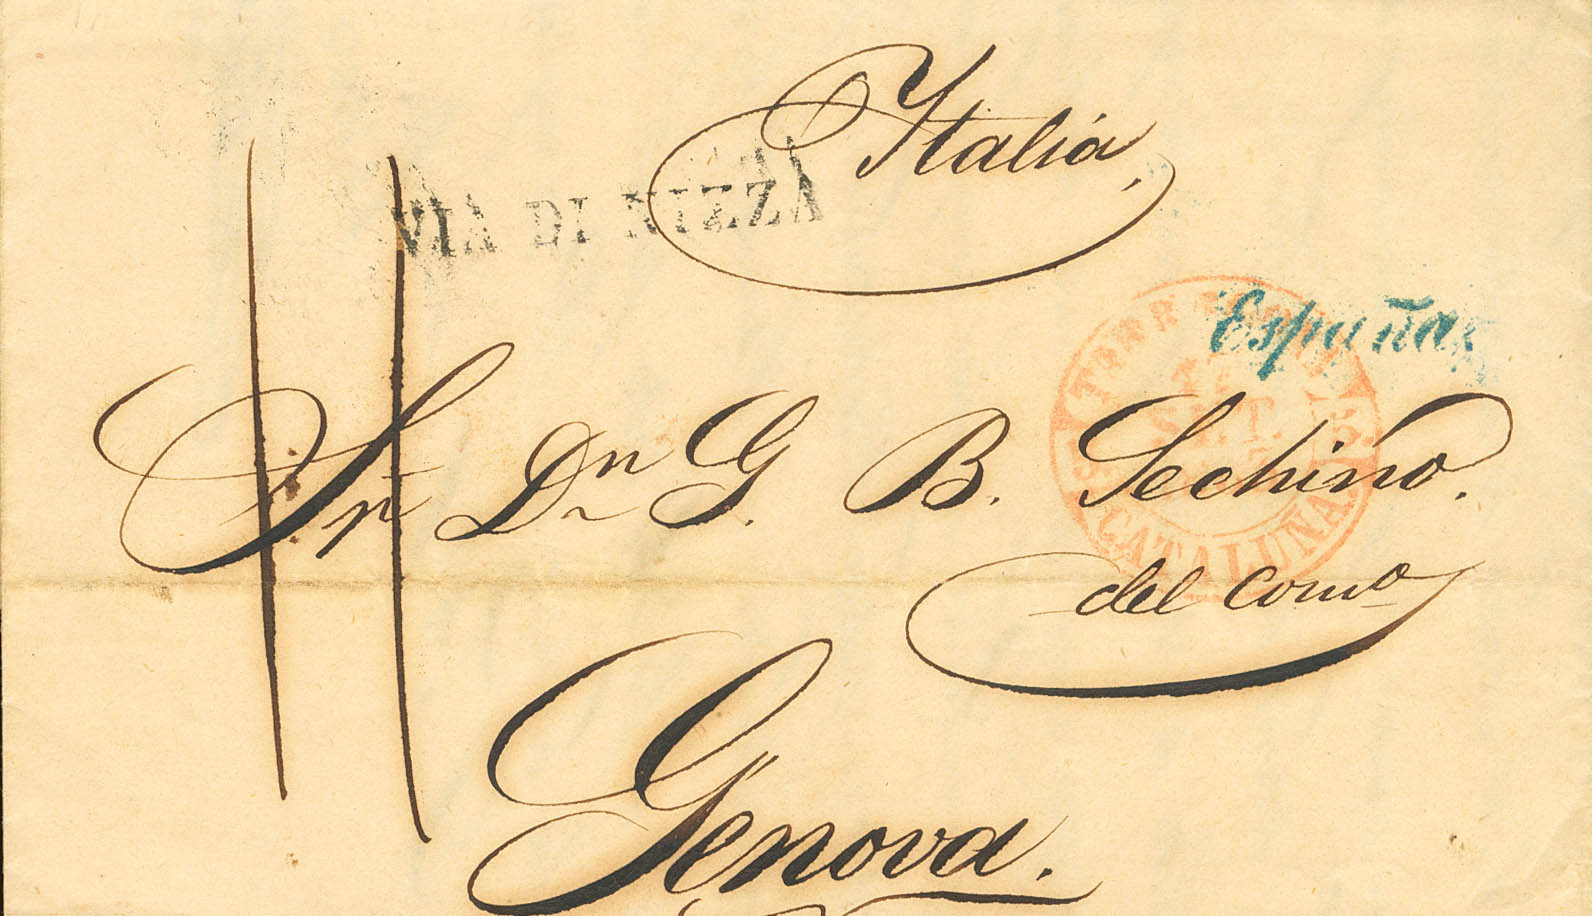 Italia,
VIA DI NIZZA
España
SET.
CATALUÑA
Sr Dn G. B. Sechino.
del como
Genova.